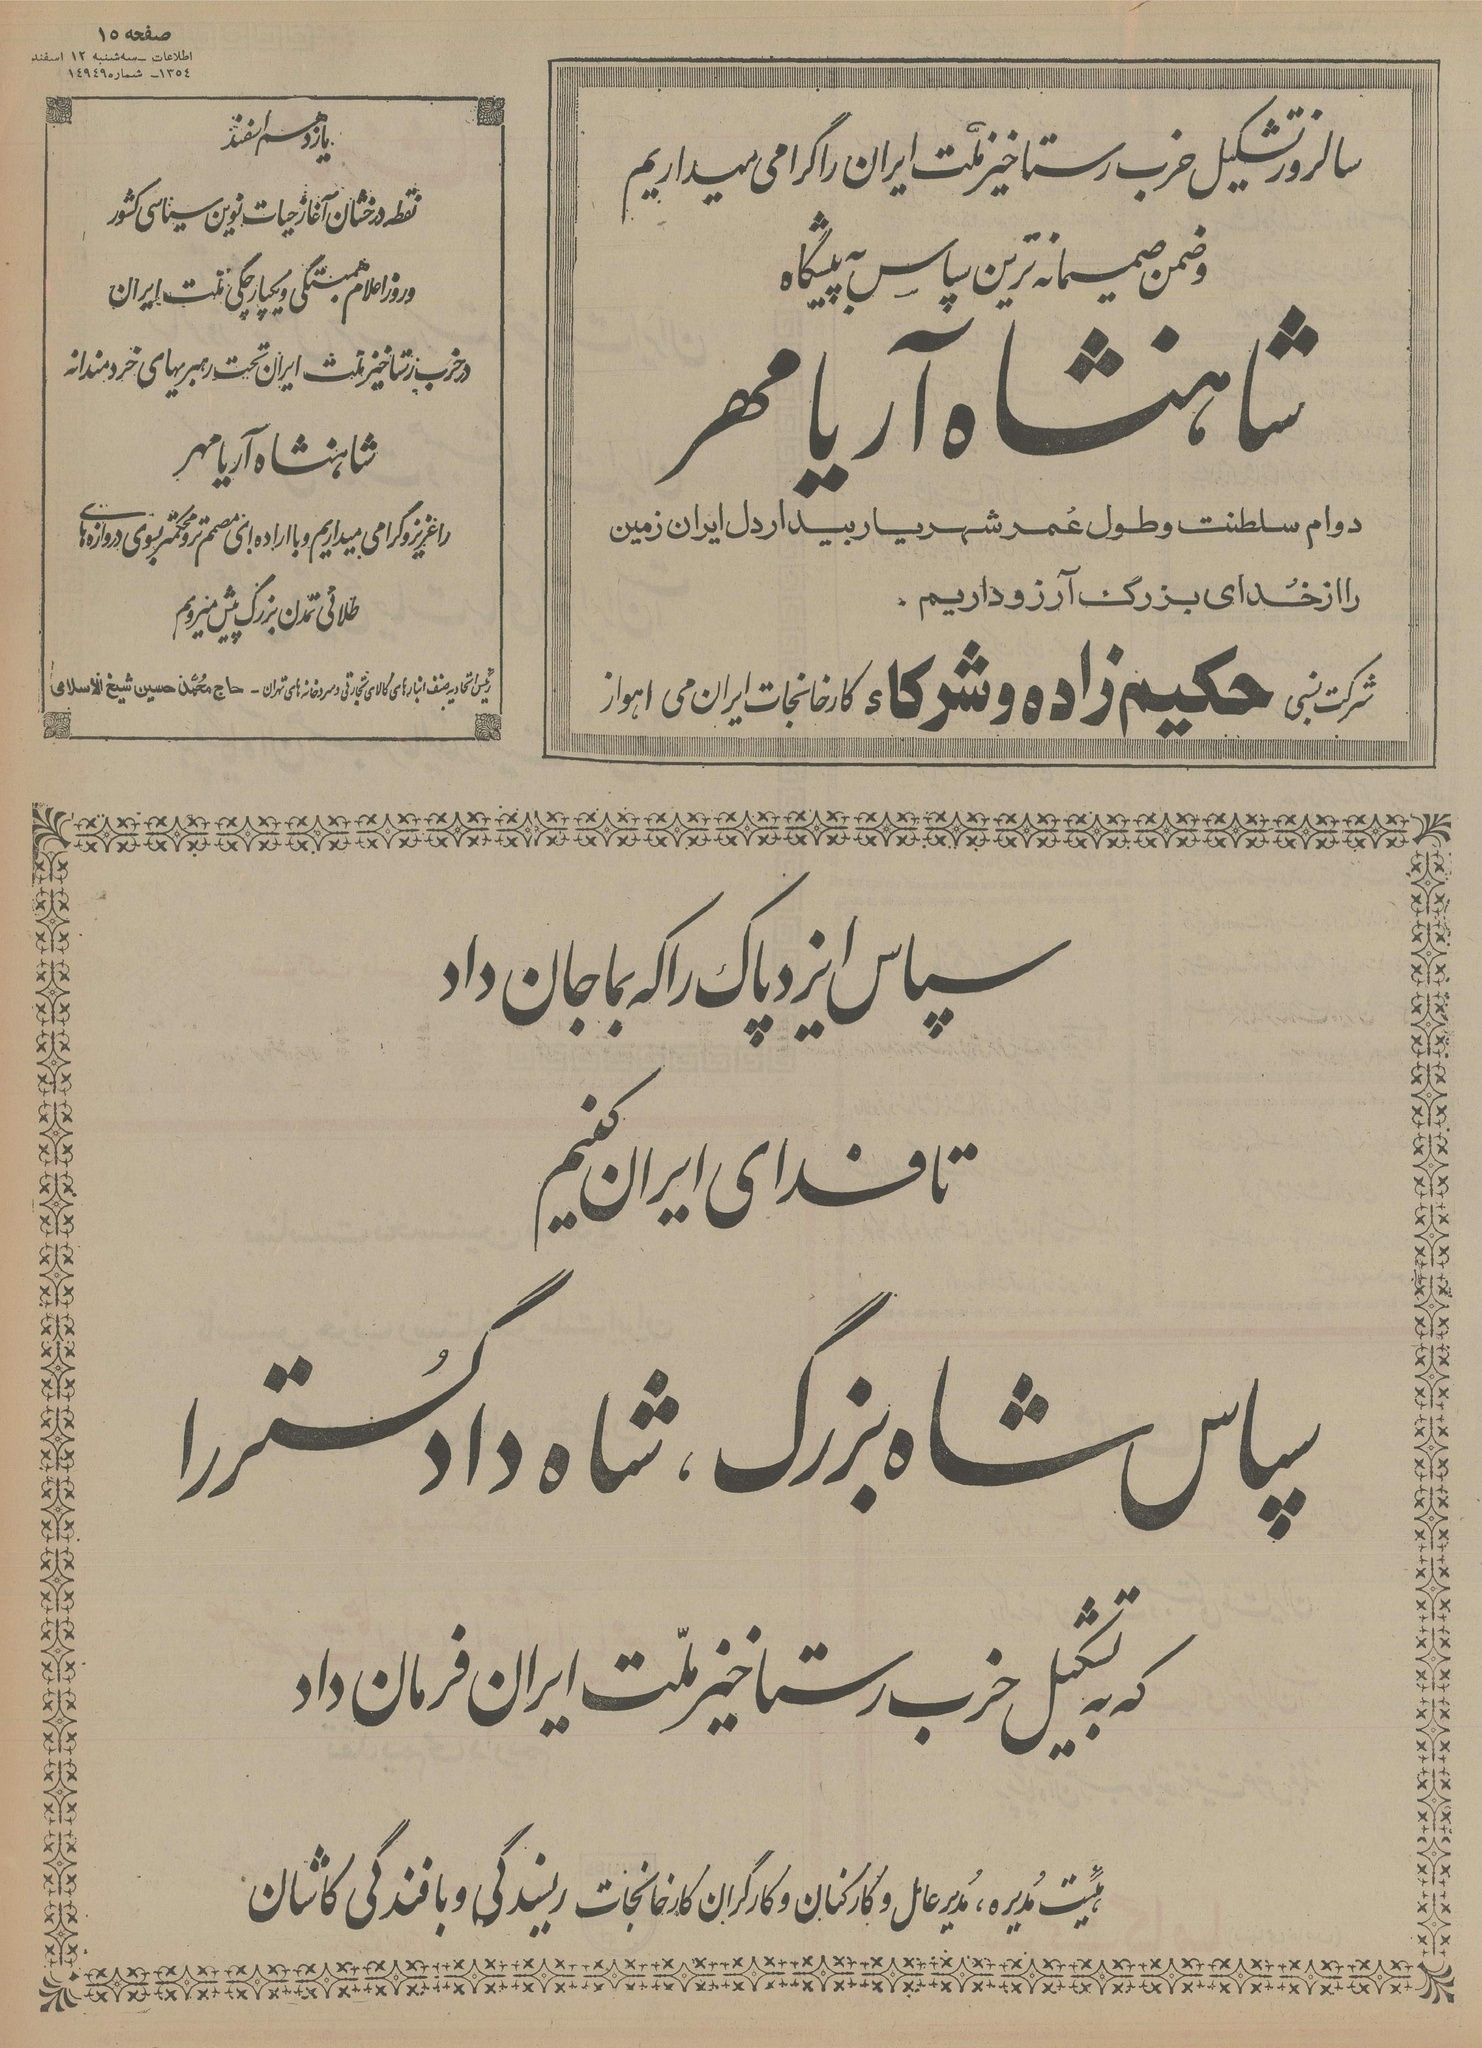 صفحه ۱۵
اطلاعات ـ سه‌شنبه ۱۲ اسفند
۱۳۵٤ـ شماره ۱٤۹٤۹
سالروز تشکیل حزب رستاخیز ملّت ایران را گرامی میداریم
وضمن صمیمانه ترین سپاس به پیشگاه
شاهنشاه آریامهر
دوام سلطنت و طول عُمر شهریار بیدار دل ایران زمین
را از خُدای بزرگ آرزو داریم .
شرکت نسبی حکیم زاده و شرکاء کارخانجات ایران می اهواز
یازدهم اسفند
نقطه درخشان آغاز حیات نوین سیاسی کشور
و روز اعلام همبستگی و یکپارچگی ملت ایران
در حزب رستاخیز ملت ایران تحت رهبریهای خردمندانه
شاهنشاه آریامهر
را عزیز و گرامی میداریم و با اراده‌ای مصمم تر و محکمتر بسوی دروازه‌های
طلائی تمدن بزرگ پیش میرویم
رئیس اتحادیه صنف انبارهای کالای تجارتی و سردخانه‌های تهران ـ حاج محمّد حسین شیخ الاسلامی
سپاس ایزد پاک را که بما جان داد
تا فدای ایران کنیم
سپاس شاه بزرگ ، شاه دادگُستر را
که به تشکیل حزب رستاخیز ملّت ایران فرمان داد
هیئت مُدیره ، مُدیر عامل و کارکنان و کارگران کارخانجات ریسندگی و بافندگی کاشان